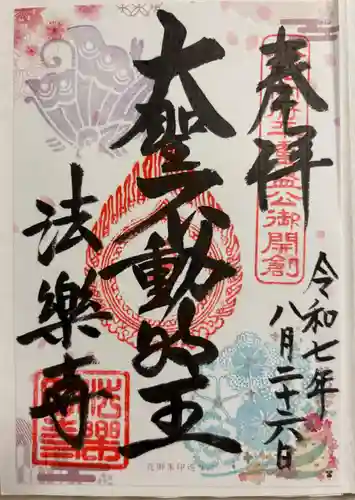 奉拝
大聖不動明王
法樂寺
令和七年
八月二十六日